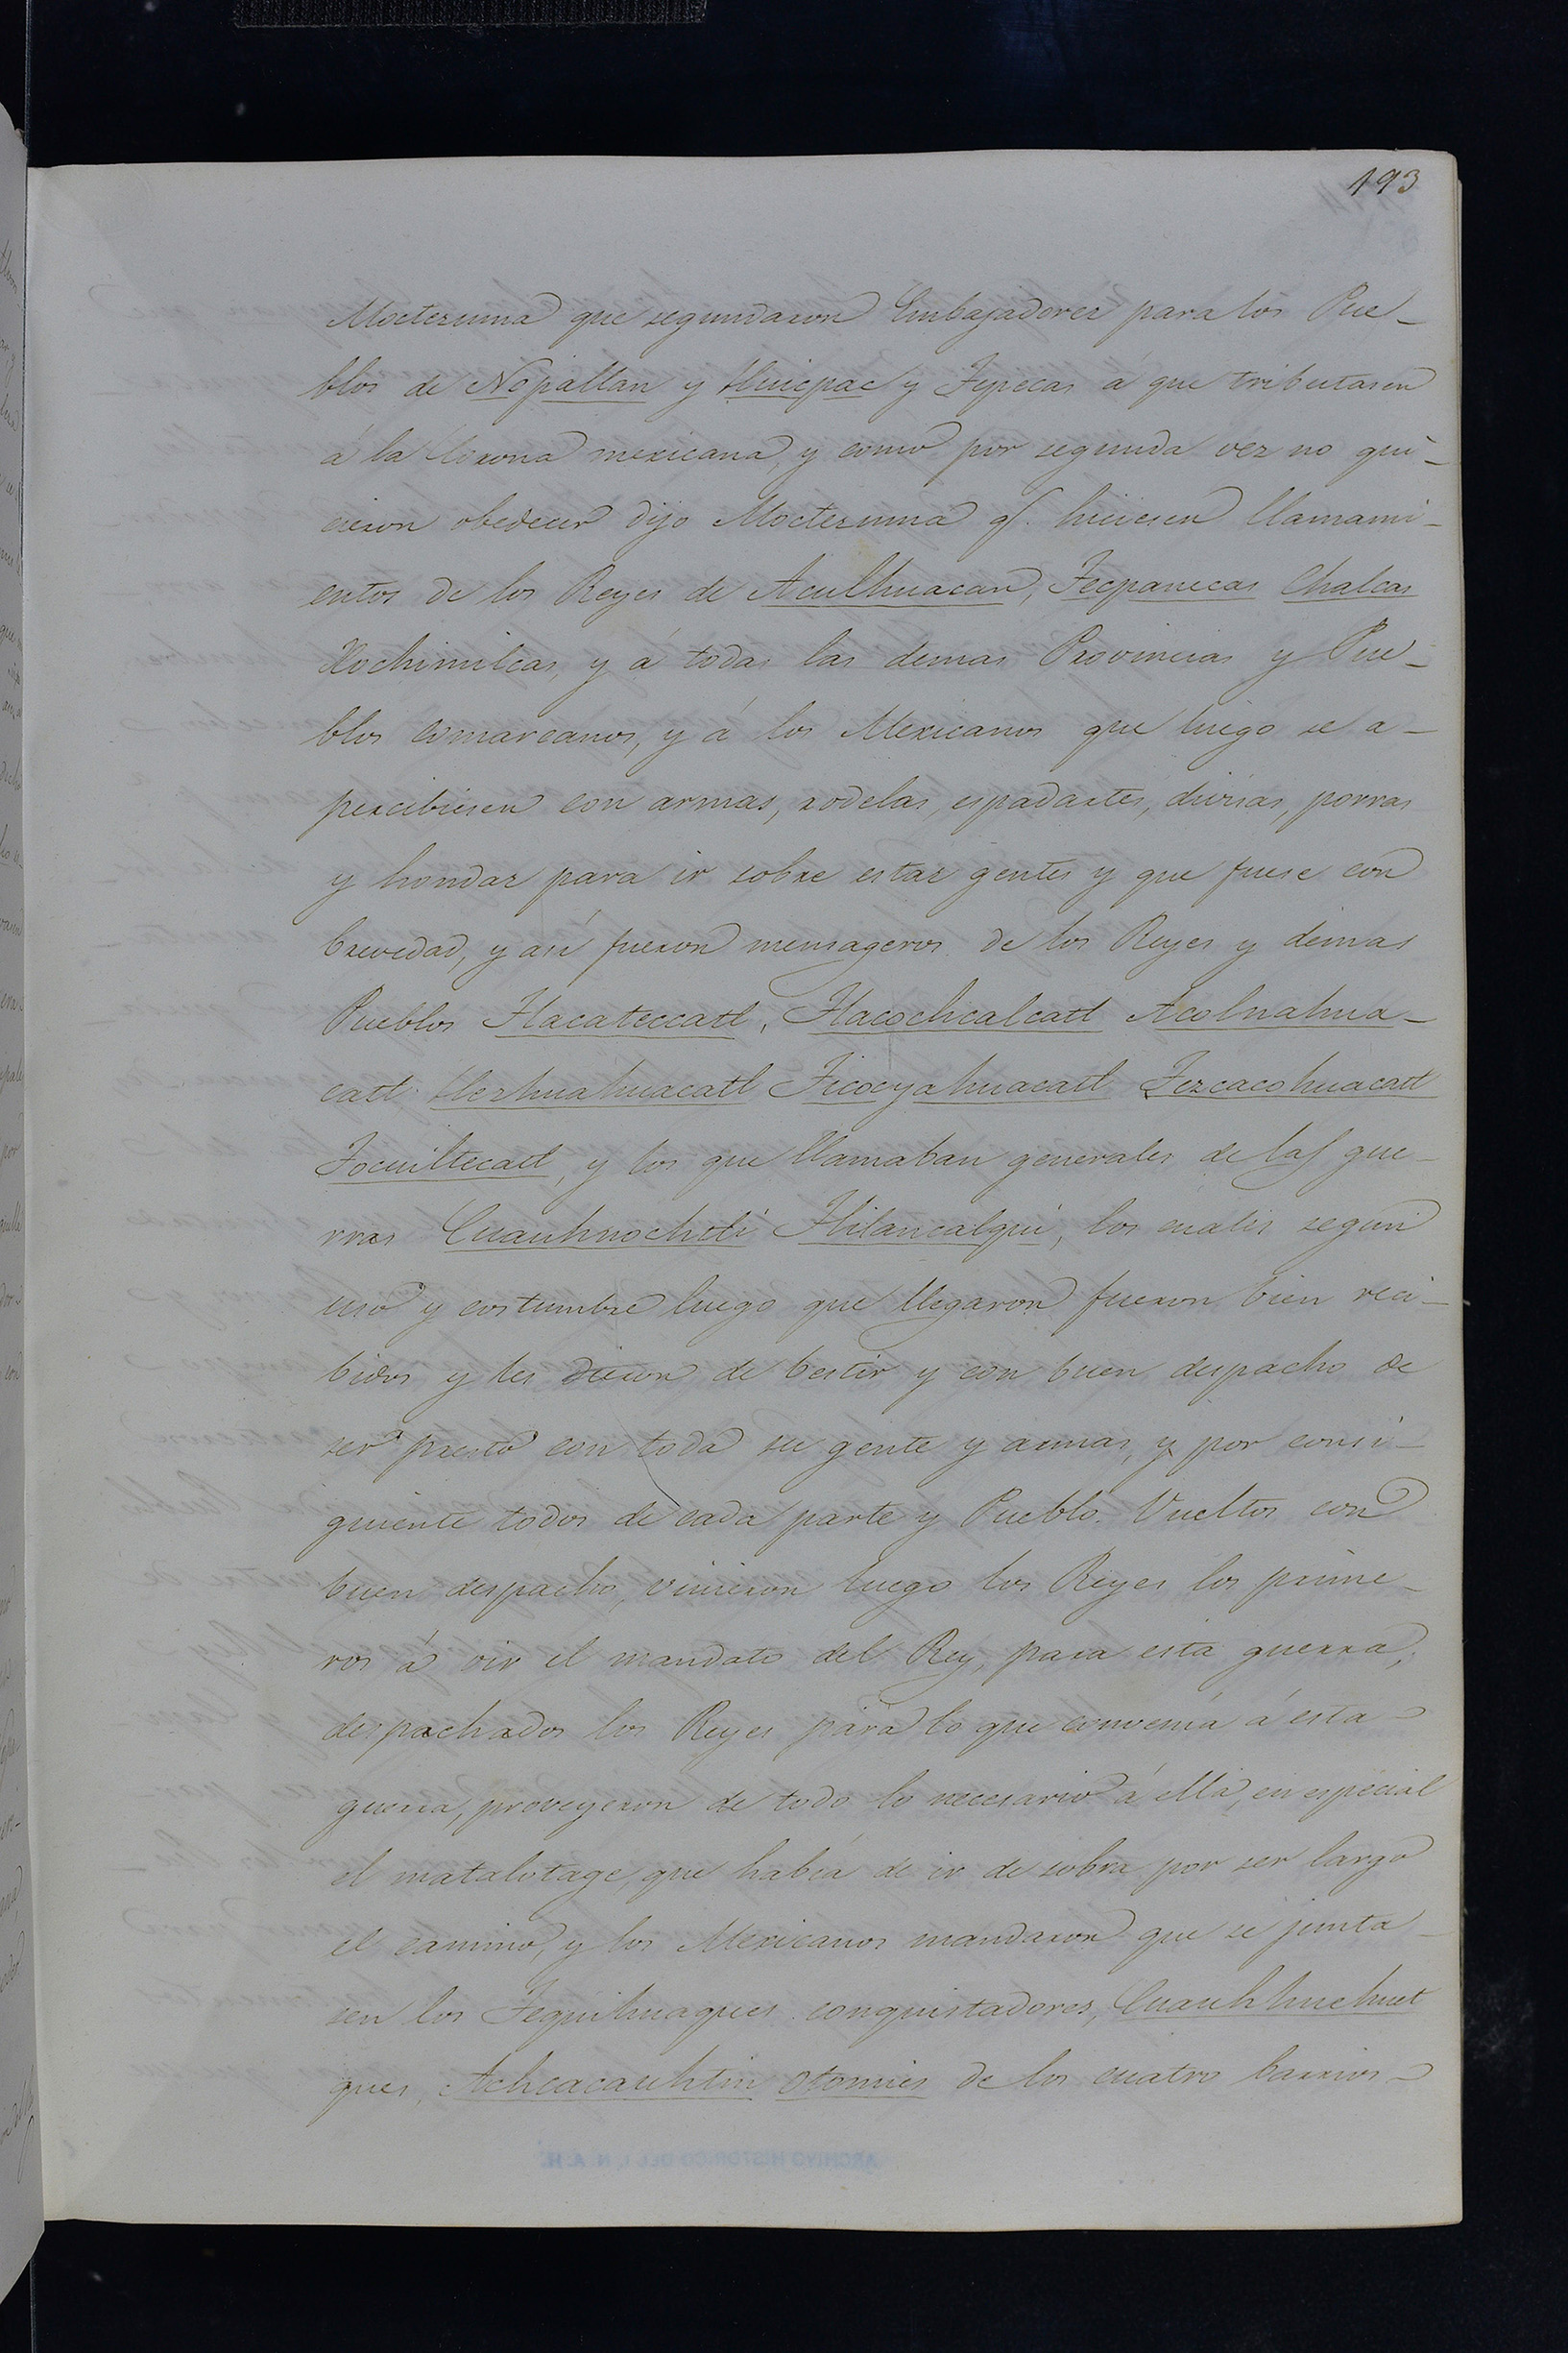 193
Moctezuma que segundaron Embajadores para los Pue-
blos de Nopallan y Huicpac y Tepecas á que tributasen
á la Corona mexicana, y como por segunda vez no qui-
cieron obedecer dijo Moctezuma q. hiciesen llamami-
entos de los Reyes de Aculhuacan, Tecpanecas Chalcas
Xochimilcas, y á todas las demas Provincias y Pue-
blos comarcanos, y á los Mexicanos que luego se a-
percibiesen con armas, rodelas, espadartes, divisas, porras
y hondas para ir sobre estas gentes y que fuese con
brevedad, y asi fueron mensageros de los Reyes y demas
Pueblos Tlacateccatl, Tlacochcalcatl Acolnahua-
catl Hezhuahuacatl Ticocyahuacatl Tezcacohuacatl
Tocuiltecatl, y los que llamaban generales de las gue-
rras Cuauhnochtli Tlilancalqui, los cuales segun
uso y costumbre luego que llegaron fueron bien reci-
bidos y les dieron de bestir y con buen despacho de
ser presto con toda su gente y armas, y por consi-
guiente todos de cada parte y Pueblo. Vueltos con
buen despacho, vinieron luego los Reyes los prime-
ros á oir el mandato del Rey, para esta guerra,
despachados los Reyes para lo que convenia á esta
guerra, proveyeron de todo lo necesario á ella, en especial
el matalotage, que habia de ir de sobra por ser largo
el camino, y los Mexicanos mandaron que se junta-
sen los Tequihuaques conquistadores, Cuauhhuehuet
ques, Achcacauhtin otomies de los cuatro barrios
ARCHIVO HISTORICO DEL I. N. A. H.